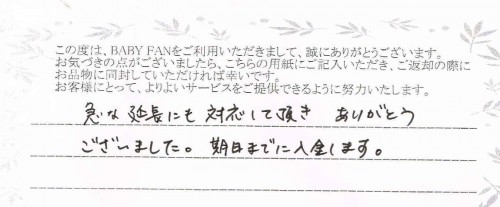 この度は、BABY FANをご利用いただきまして、誠にありがとうございます。
お気づきの点がございましたら、こちらの用紙にご記入いただき、ご返却の際に
お品物に同封していただければ幸いです。
お客様にとって、よりよいサービスをご提供できるように努力いたします。
急な延長にも対応して頂き ありがとう
ございました。期日までに入金します。